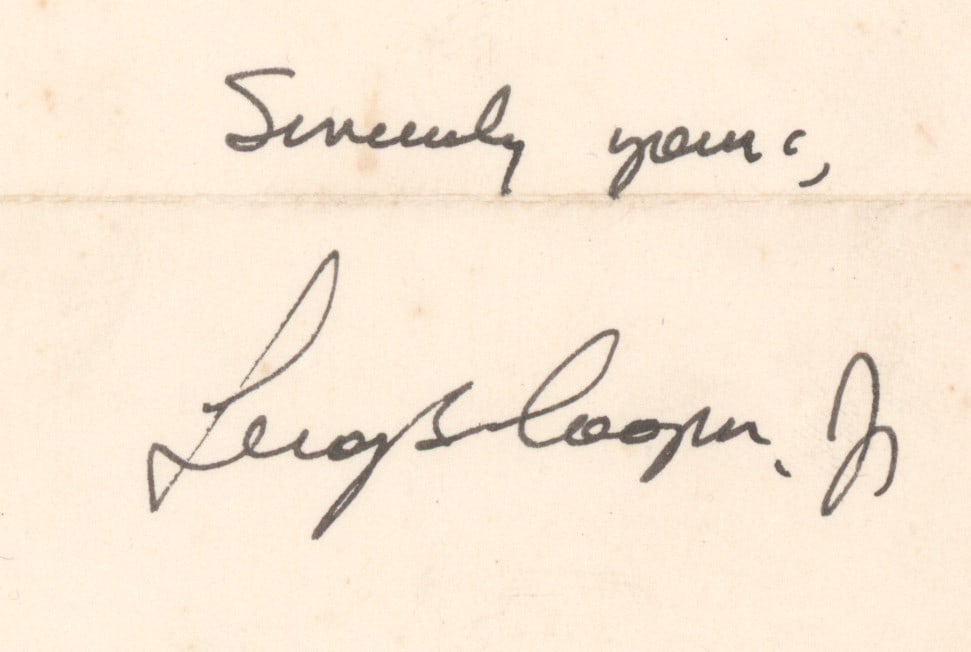 Sincerely yours,
Leroy B Cooper, Jr